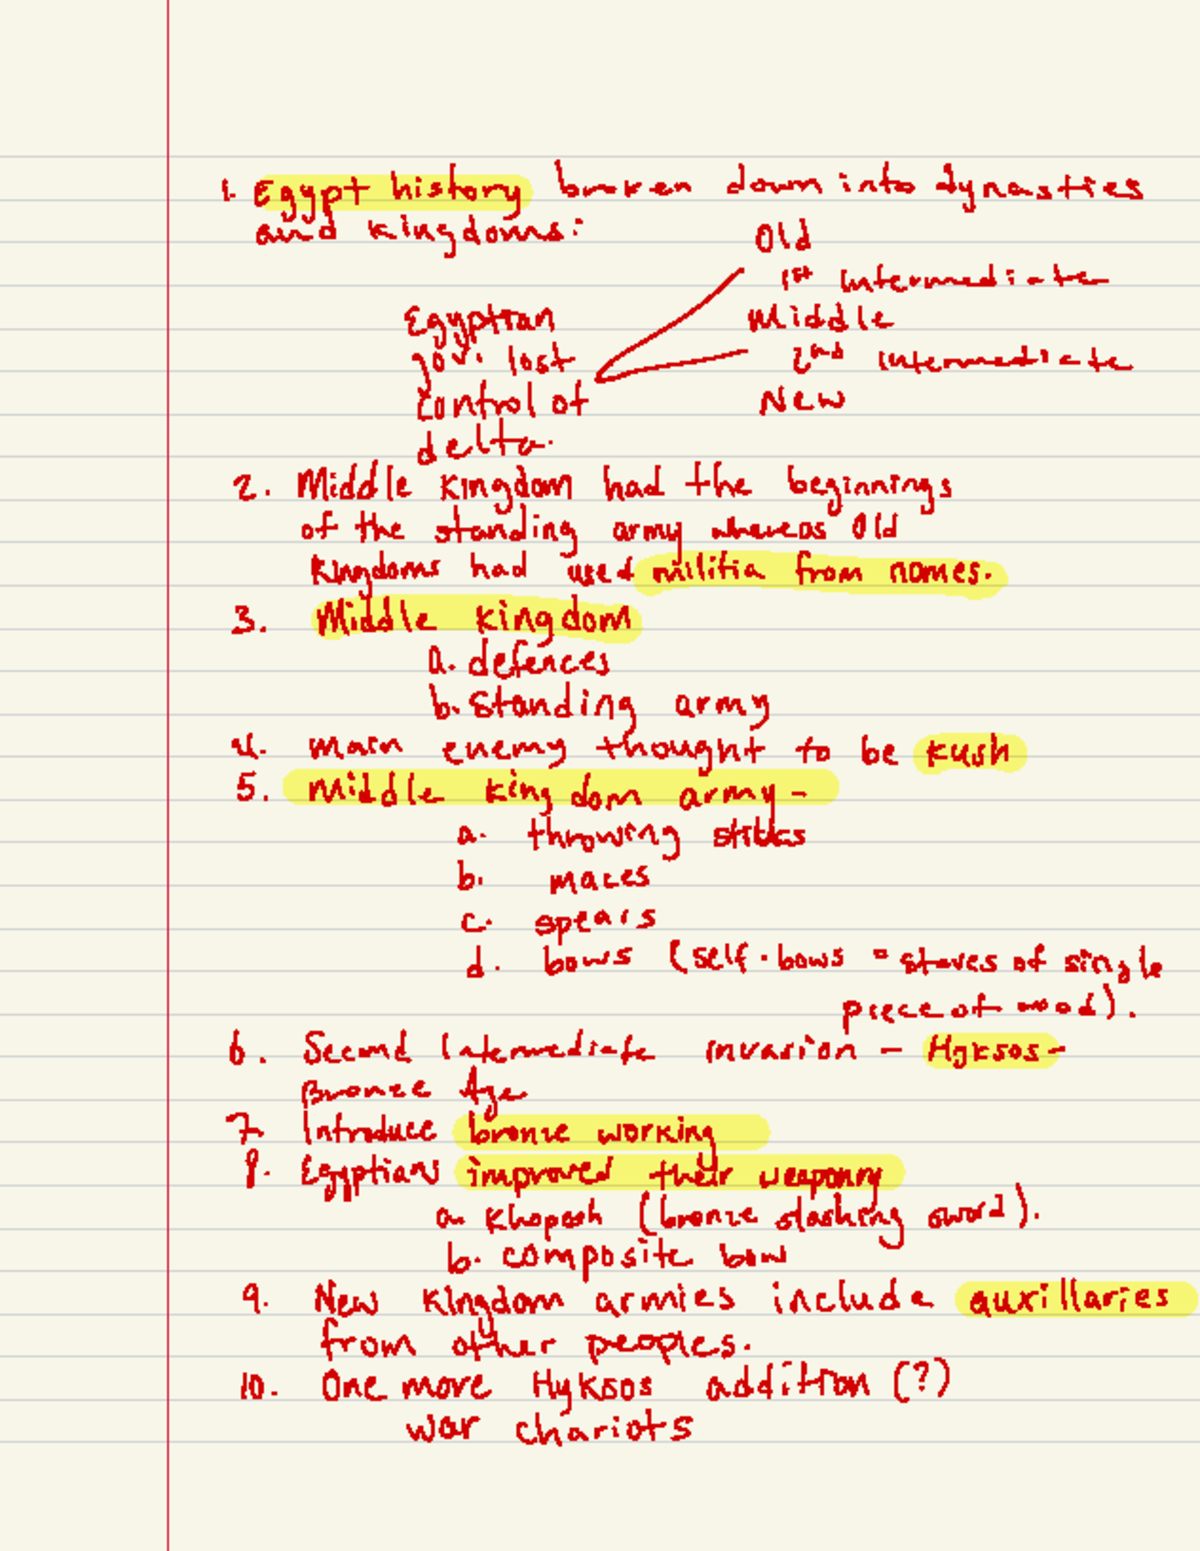 1. Egypt history broken down into dynasties
and kingdoms:
Old
1st Intermediate
Egyptian
Middle
gov. lost
2nd Intermediate
control of
New
delta.
2. Middle Kingdom had the beginnings
of the standing army whereas Old
Kingdoms had used militia from nomes.
3. Middle Kingdom
a. defences
b. standing army
4. main enemy thought to be Kush
5. Middle Kingdom army -
a. throwing sticks
b. maces
c. spears
d. bows (self-bows = staves of single
piece of wood).
6. Second Intermediate invasion - Hyksos -
Bronze Age
7. Introduce bronze working
8. Egyptians improved their weaponry
a. Khopesh (bronze slashing sword).
b. composite bow
9. New Kingdom armies include auxillaries
from other peoples.
10. One more Hyksos addition (?)
war chariots